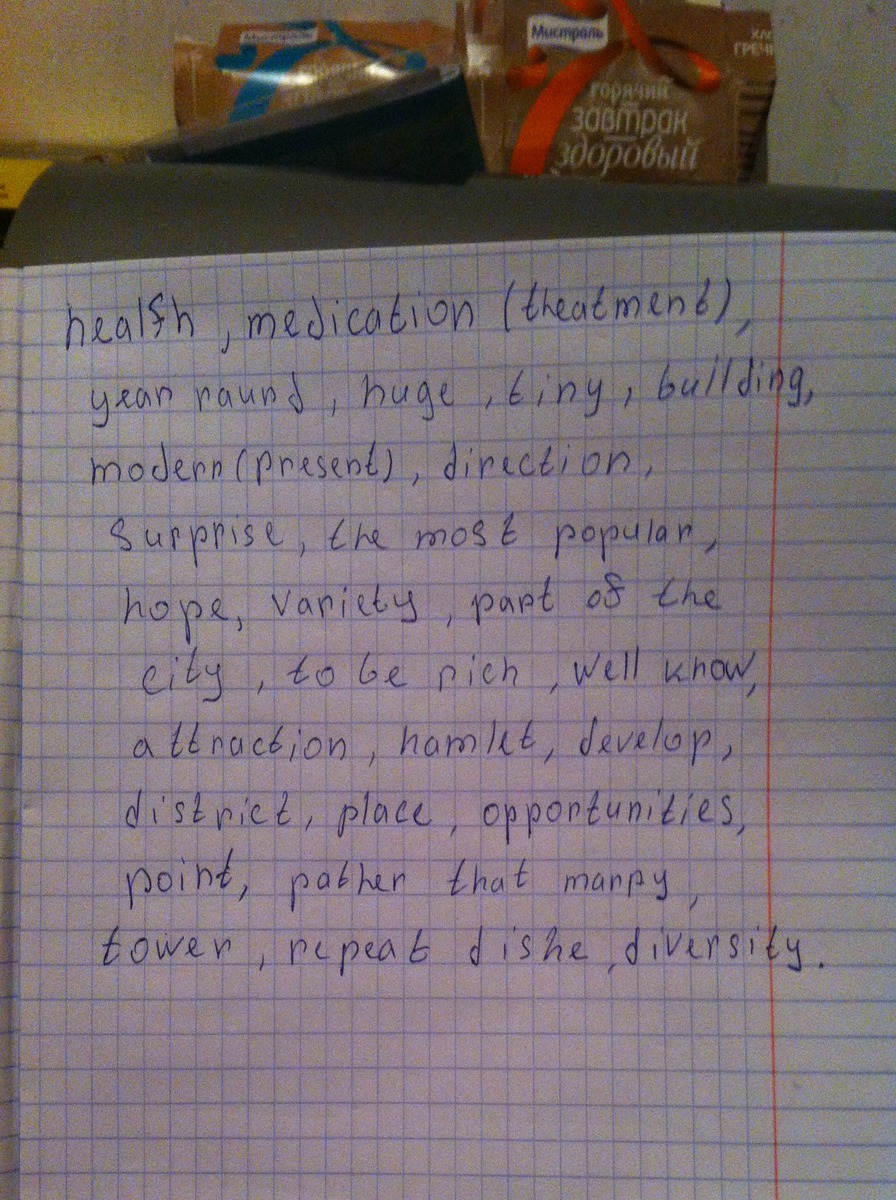 Мистраль
Мистраль
горячий
завтрак
здоровый
health, medication (theatment),
year raund, huge, tiny, building,
modern (present), direction,
surprise, the most popular,
hope, variety, part of the
city, to be rich, well know,
attraction, hamlet, develop,
district, place, opportunities,
point, pather that marpy,
tower, repeat dishe, diversity.